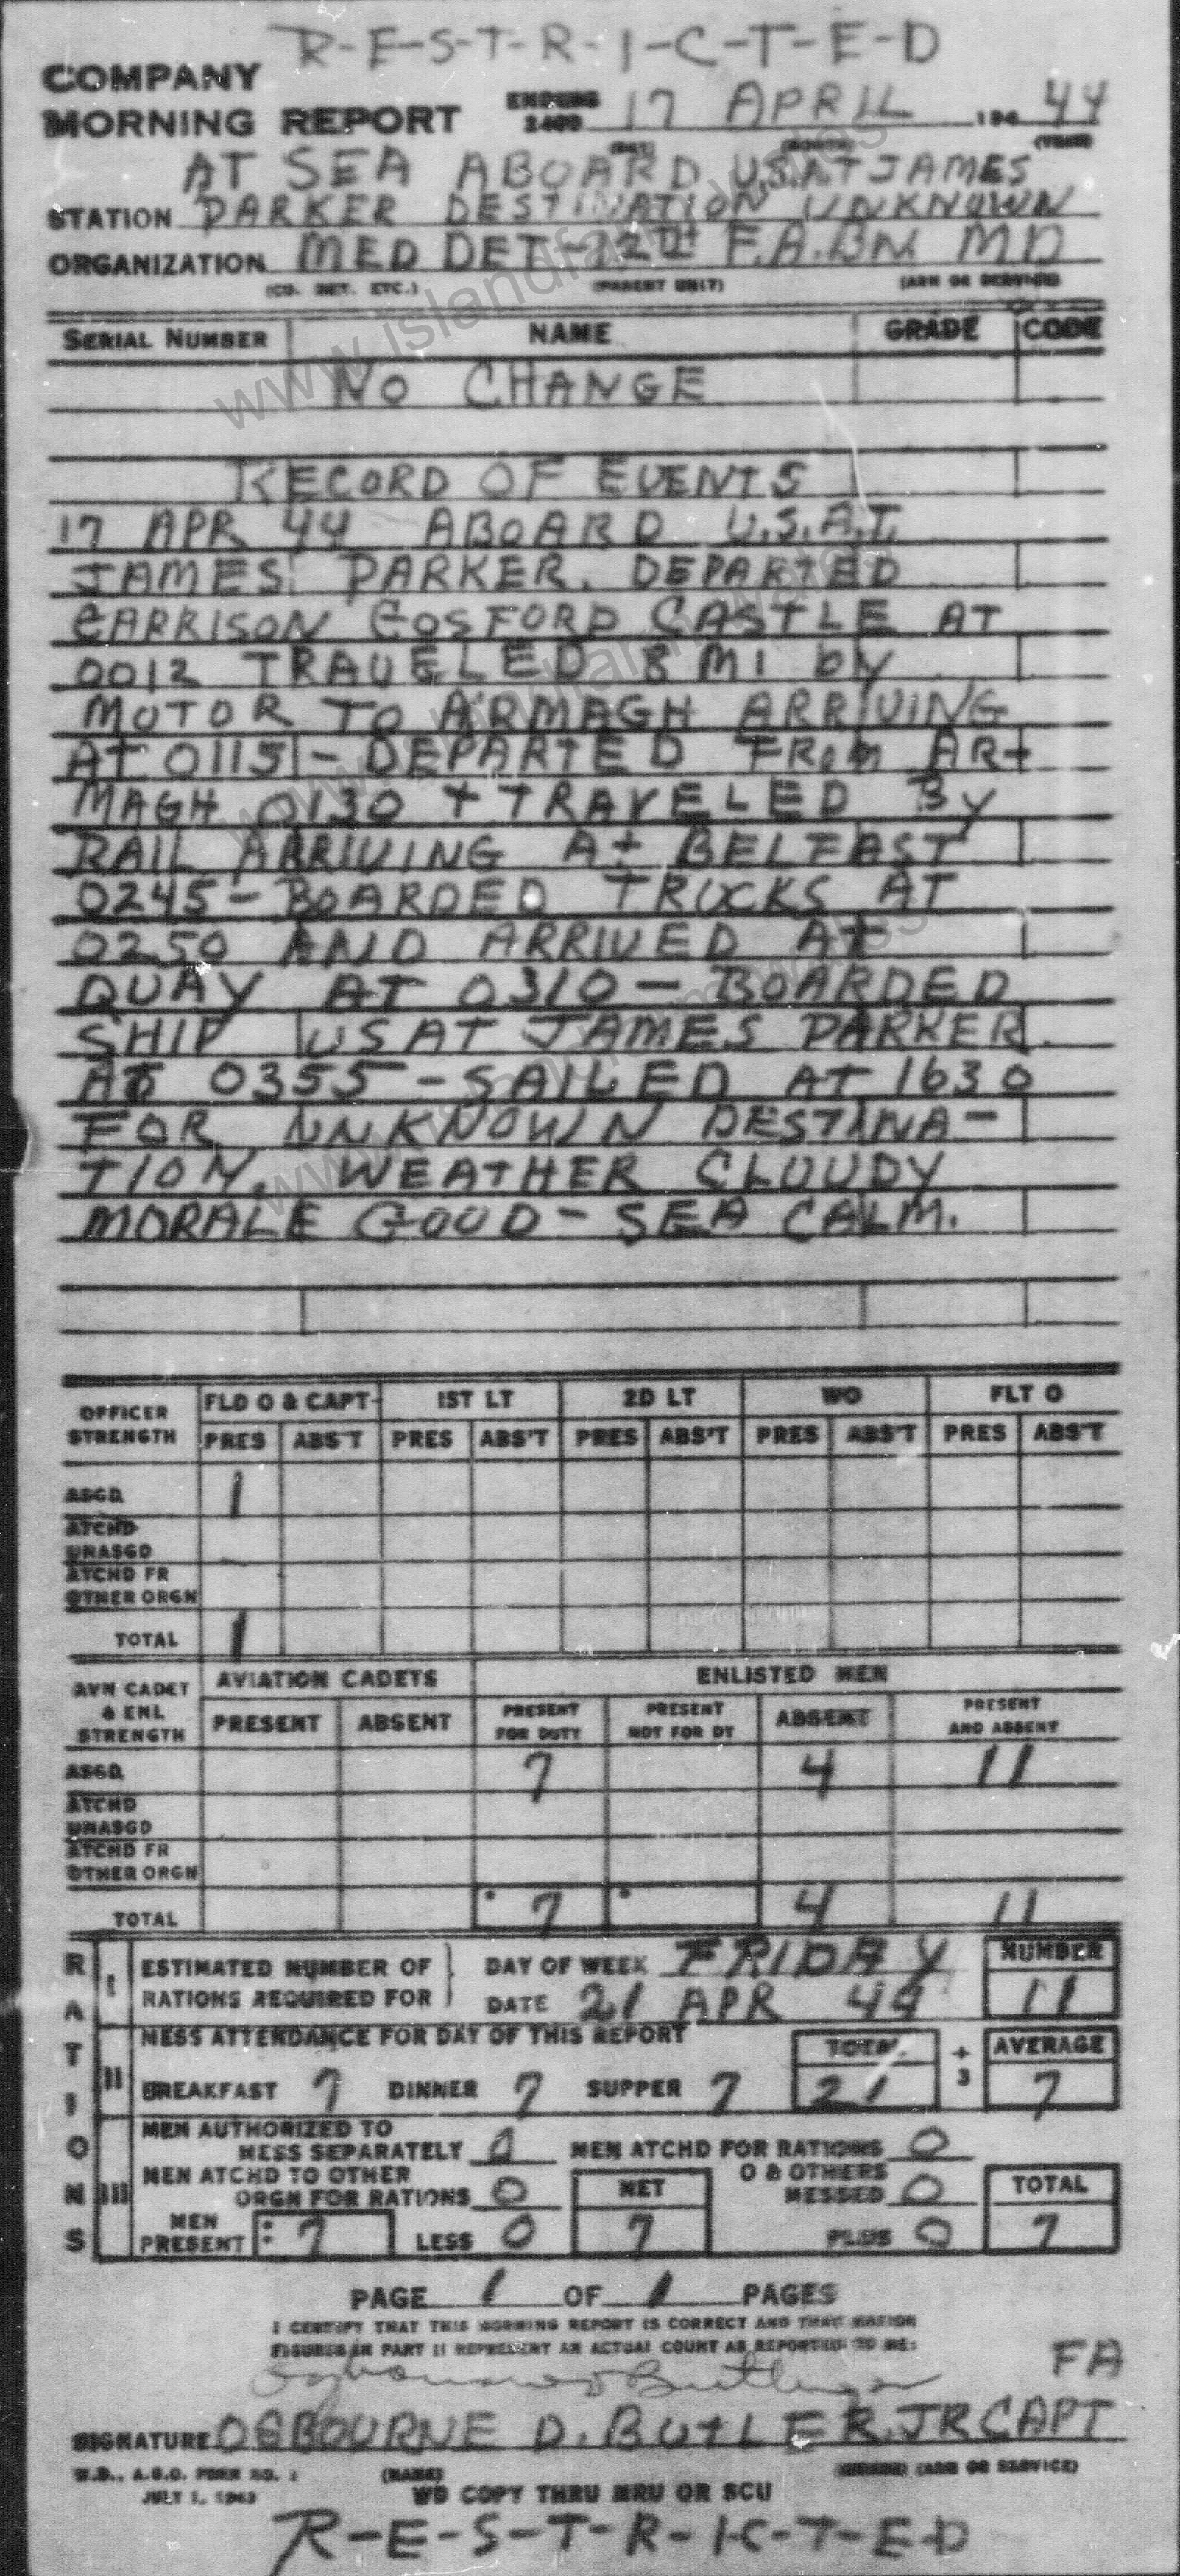 R-E-S-T-R-I-C-T-E-D
COMPANY
MORNING REPORT ENDING 2400 17 APRIL 194 44
(DAY) (MONTH) (YEAR)
AT SEA ABOARD U.S.A.T JAMES
STATION PARKER DESTINATION UNKNOWN
ORGANIZATION MED DET-12TH F.A.BN. MD
(CO. DET. ETC.) (PARENT UNIT) (ARM OR SERVICE)
SERIAL NUMBER NAME GRADE CODE
NO CHANGE
RECORD OF EVENTS
17 APR 44 ABOARD U.S.A.T.
JAMES PARKER. DEPARTED
GARRISON GOSFORD CASTLE AT
0012 TRAVELED 8 MI by
MOTOR TO ARMAGH ARRIVING
AT 0115 - DEPARTED FROM AR-
MAGH 0130 + TRAVELED By
RAIL ARRIVING At BELFAST
0245 - BOARDED TRUCKS AT
0250 AND ARRIVED AT
QUAY AT 0310 - BOARDED
SHIP USAT JAMES PARKER
AT 0355 - SAILED AT 1630
FOR UNKNOWN DESTINA-
TION. WEATHER CLOUDY
MORALE GOOD - SEA CALM.
OFFICER STRENGTH FLD O & CAPT 1ST LT 2D LT WO FLT O
PRES ABS'T PRES ABS'T PRES ABS'T PRES ABS'T PRES ABS'T
ASGD 1
ATCHD UNASGD
ATCHD FR OTHER ORGN
TOTAL 1
AVN CADET & ENL STRENGTH AVIATION CADETS ENLISTED MEN
PRESENT ABSENT PRESENT FOR DUTY PRESENT NOT FOR DY ABSENT PRESENT AND ABSENT
ASGD 7 4 11
ATCHD UNASGD
ATCHD FR OTHER ORGN
TOTAL 7 4 11
RATIONS
I ESTIMATED NUMBER OF DAY OF WEEK FRIDAY NUMBER
RATIONS REQUIRED FOR DATE 21 APR 44 11
II MESS ATTENDANCE FOR DAY OF THIS REPORT TOTAL ÷ 3 AVERAGE
BREAKFAST 7 DINNER 7 SUPPER 7 21 7
III MEN AUTHORIZED TO
MESS SEPARATELY 0 MEN ATCHD FOR RATIONS 0
MEN ATCHD TO OTHER
ORGN FOR RATIONS 0 NET O & OTHERS MESSED 0 TOTAL
MEN PRESENT 7 LESS 0 7 PLUS 0 7
PAGE 1 OF 1 PAGES
I CERTIFY THAT THIS MORNING REPORT IS CORRECT AND THAT RATION
FIGURES IN PART II REPRESENT AN ACTUAL COUNT AS REPORTED TO ME:
FA
SIGNATURE OSBOURNE D. BUTLER.JR CAPT
W.D., A.G.O. FORM NO. 1 (NAME) (ARM OR SERVICE)
JULY 1, 1943 WD COPY THRU MRU OR SCU
R-E-S-T-R-I-C-T-E-D